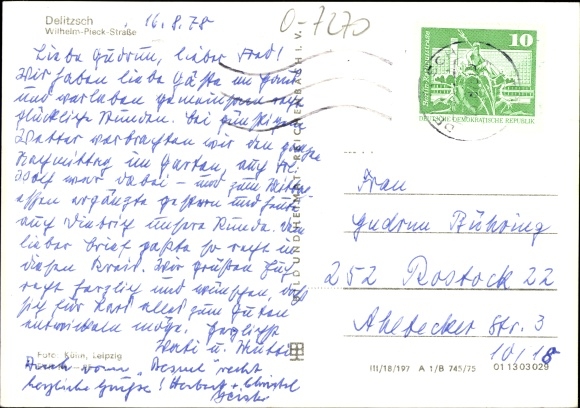 Delitzsch
Wilhelm-Pieck-Straße
16.8.78
O-7270
Liebe Gudrun, lieber Fred!
Wir haben liebe Gäste im Haus
und verleben gemeinsam recht
glückliche Stunden. Bei günstigem
Wetter verbrachten wir den ganzen
Nachmittag im Garten, auch
war dabei – und zum Mittag-
essen ergänzte gestern und heute
auch Diedrich unsere Runde. Dein
lieber Brief paßte so recht in
diesen Kreis. Wir grüßen Euch
recht herzlich und wünschen, daß
sich für Karl alles zum Guten
entwickeln möge. Herzlichst
Vati u. Mutti
Auch vom recht
herzliche Grüße! Herbert + Christel
Foto: Kühn, Leipzig
BILD UND HEIMAT REICHENBACH I. V.
10
Berlin, Neptunbrunnen
DEUTSCHE DEMOKRATISCHE REPUBLIK
Frau
Gudrun Bühring
252 Rostock 22
Ahlbecker Str. 3
10/18
III/18/197 A 1/B 745/75 01 13 03 029